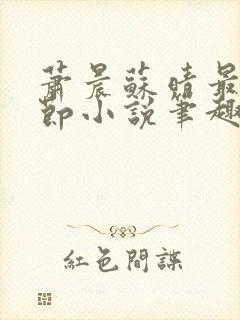 蕭晨蘇晴最
節小說筆趣
紅色間諜